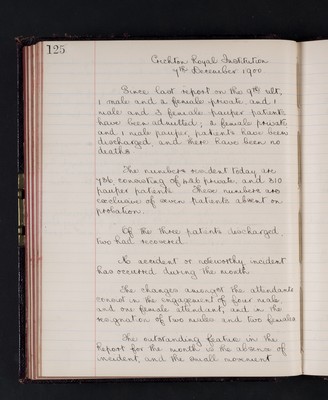 125
Crichton Royal Institution
7th December 1900
Since last report on the 9th ult,
1 male and 2 female private and 1
male and 3 female pauper patients
have been admitted; 2 female private
and 1 male pauper, patients have been
discharged and there have been no
deaths
The numbers resident today are
consisting of private and 310
pauper patients. These numbers are
exclusive of seven patients absent on
probation.
Of the three patients discharged
two had recovered
No accident or noteworthy incident
has occurred during the month
The changes amongst the attendants
consist in the engagement of four male
and one female attendant, and in the
resignation of two males and two females
The outstanding feature in the
Report for the month is the absence of
incident, and the small movement